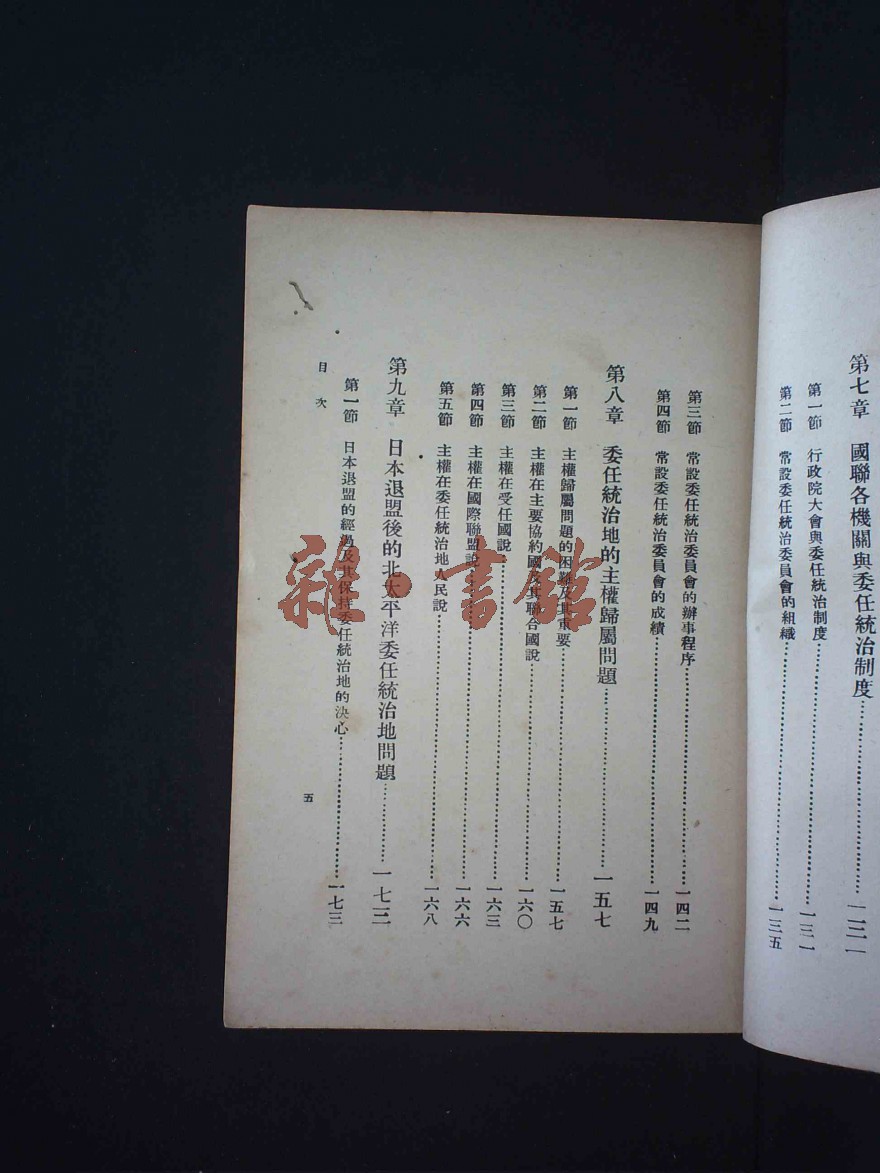 第七章　國聯各機關與委任統治制度…………一三一
第一節　行政院大會與委任統治制度…………一三一
第二節　常設委任統治委員會的組織…………一三五
第三節　常設委任統治委員會的辦事程序…………一四二
第四節　常設委任統治委員會的成績…………一四九
第八章　委任統治地的主權歸屬問題…………一五七
第一節　主權歸屬問題的困難及其重要…………一五七
第二節　主權在主要協約國及其聯合國說…………一六〇
第三節　主權在受任國說…………一六三
第四節　主權在國際聯盟說…………一六六
第五節　主權在委任統治地人民說…………一六八
第九章　日本退盟後的北太平洋委任統治地問題…………一七三
第一節　日本退盟的經過及其保持委任統治地的決心…………一七三
目次
五
雜·書館